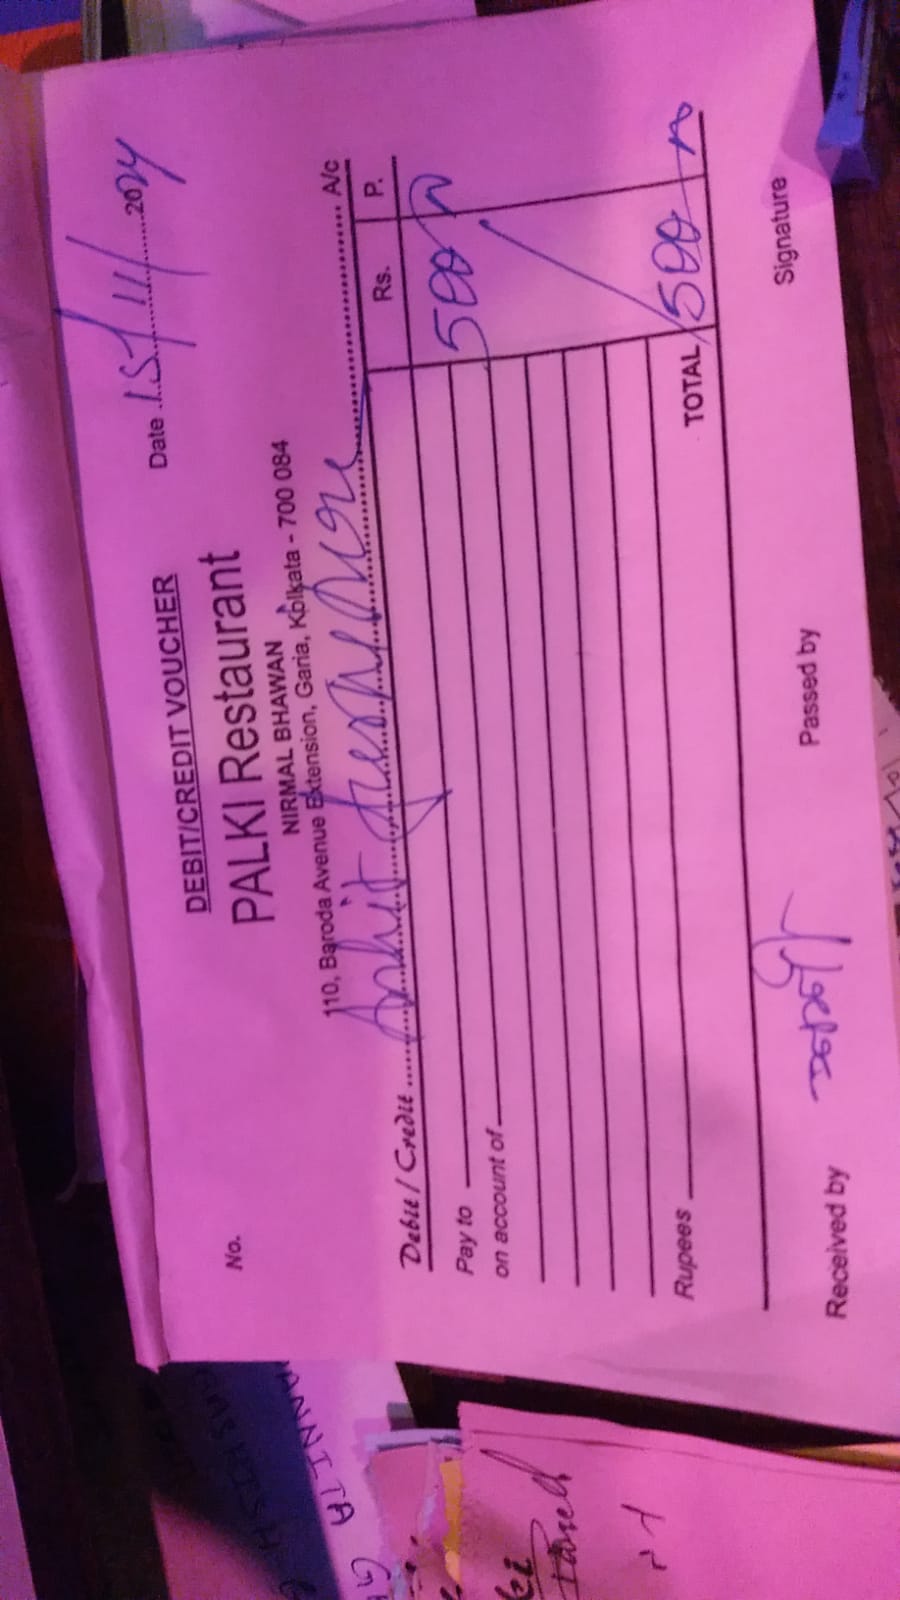 DEBIT/CREDIT VOUCHER
Date 15/11/2024
No.
PALKI Restaurant
NIRMAL BHAWAN
110, Baroda Avenue Extension, Garia, Kolkata - 700 084
Debit / Credit Ankit A/c
Rs. P.
Pay to 500
on account of
Rupees TOTAL 500
Received by Passed by Signature